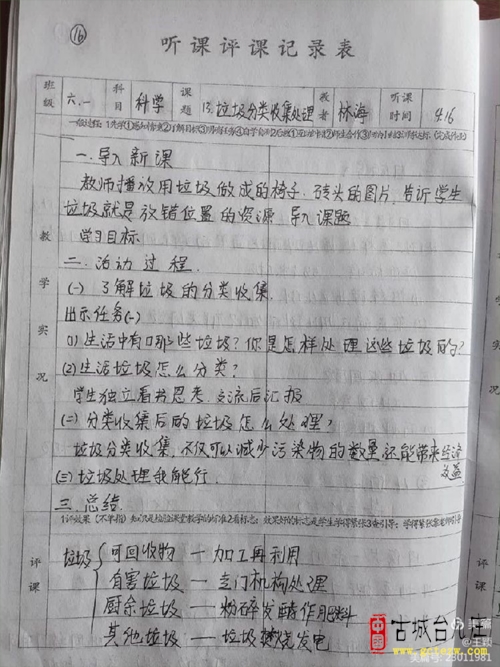 16
听课评课记录表
班级 六.一 科目 科学 课题 13.垃圾分类收集处理 教者 林海 听课时间 4.16
教学实况
一.导入新课
教师播放用垃圾做成的椅子、砖头的图片,告诉学生
垃圾就是放错位置的资源 导入课题
学习目标
二.活动过程.
(一) 了解垃圾的分类收集.
出示任务(一)
(1)生活中有哪些垃圾?你是怎样处理这些垃圾的?
(2)生活垃圾怎么分类?
学生独立看书思考,交流后汇报
(二)分类收集后的垃圾怎么处理,
垃圾分类收集,不仅可以减少污染物的数量还能带来经济
效益
(三)垃圾处理我能行.
三.总结.
评课
垃圾
可回收物 — 加工再利用
有害垃圾 — 专门机构处理
厨余垃圾 — 粉碎发酵作肥料
其他垃圾 — 垃圾焚烧发电
古城台儿庄
美篇号:28011981